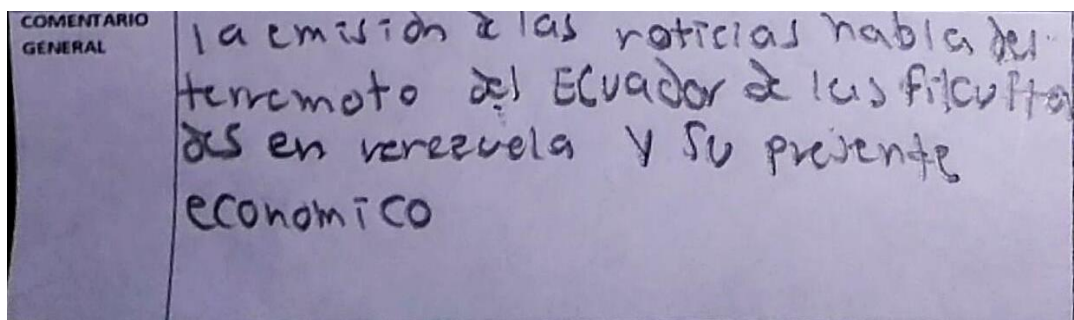 COMENTARIO
GENERAL
la emisión de las noticias habla del
terremoto del Ecuador de las filculta
des en verezuela y su presente
economico